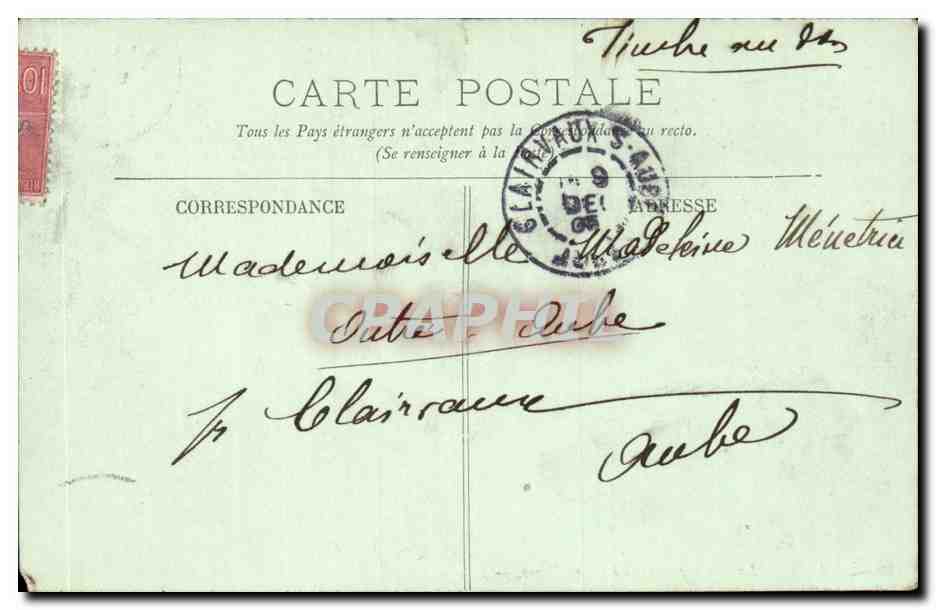 Timbre au dos
CARTE POSTALE
Tous les Pays étrangers n'acceptent pas la Correspondance au recto.
(Se renseigner à la Poste)
CLAIRVAUX S-AUBE
9
DEC
05
AUBE
CORRESPONDANCE
ADRESSE
Mademoiselle Madeleine Ménetrier
Outre Aube
pr Clairvaux
Aube
10
CRAPHIL